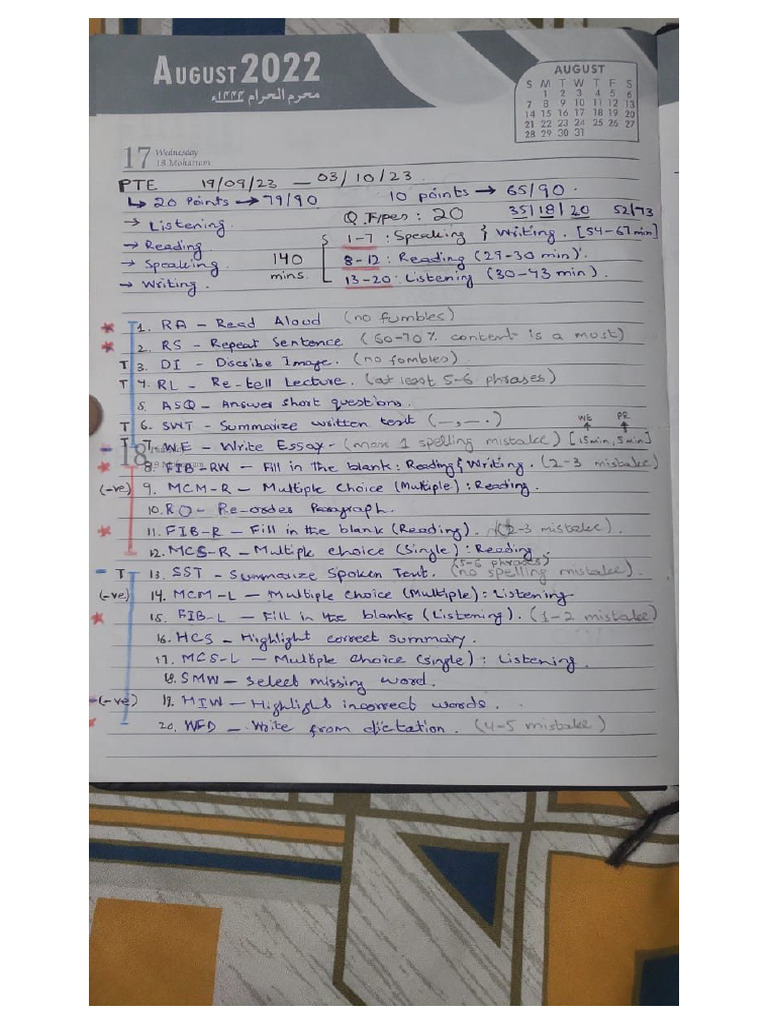 AUGUST 2022
محرم الحرام ١٤٤٤ھ
AUGUST
S M T W T F S
1 2 3 4 5 6
7 8 9 10 11 12 13
14 15 16 17 18 19 20
21 22 23 24 25 26 27
28 29 30 31
17 Wednesday
18 Moharram
PTE 19/09/23 – 03/10/23.
↳ 20 Points → 79/90 10 points → 65/90.
→ Listening. Q.Types: 20 35/18/20 52/73
→ Reading 1-7: Speaking & Writing. [54-67 min]
→ Speaking. 140 mins. 8-12: Reading (29-30 min).
→ Writing. 13-20: Listening (30-43 min).
* 1. RA – Read Aloud (no fumbles)
* 2. RS – Repeat Sentence (60-70% content is a must)
T 3. DI – Discribe Image. (no fombles).
T 4. RL – Re-tell Lecture. (at least 5-6 phrases)
5. ASQ – Answer short questions.
T 6. SWT – Summarize written text (—,—.) WE PR
T 7. WE – Write Essay – (max 1 spelling mistake) [15min, 5min]
18
* 8. FIB-RW – Fill in the blank: Reading & Writing. (2-3 mistake)
(-ve) 9. MCM-R – Multiple Choice (Multiple): Reading.
10. RO – Re-order Paragraph.
* 11. FIB-R – Fill in the blank (Reading). (2-3 mistake).
12. MCS-R – Multiple choice (Single): Reading.
(5-6 phrases)
– T 13. SST – Summarize Spoken Text. (no spelling mistake).
(-ve) 14. MCM-L – Multiple Choice (Multiple): Listening
* 15. FIB-L – Fill in the blanks (Listening). (1-2 mistake)
16. HCS – Highlight correct summary.
17. MCS-L – Multiple choice (single): Listening.
18. SMW – Select missing word.
–(-ve) 19. HIW – Highlight incorrect words.
* 20. WFD – Write from dictation. (4-5 mistake)